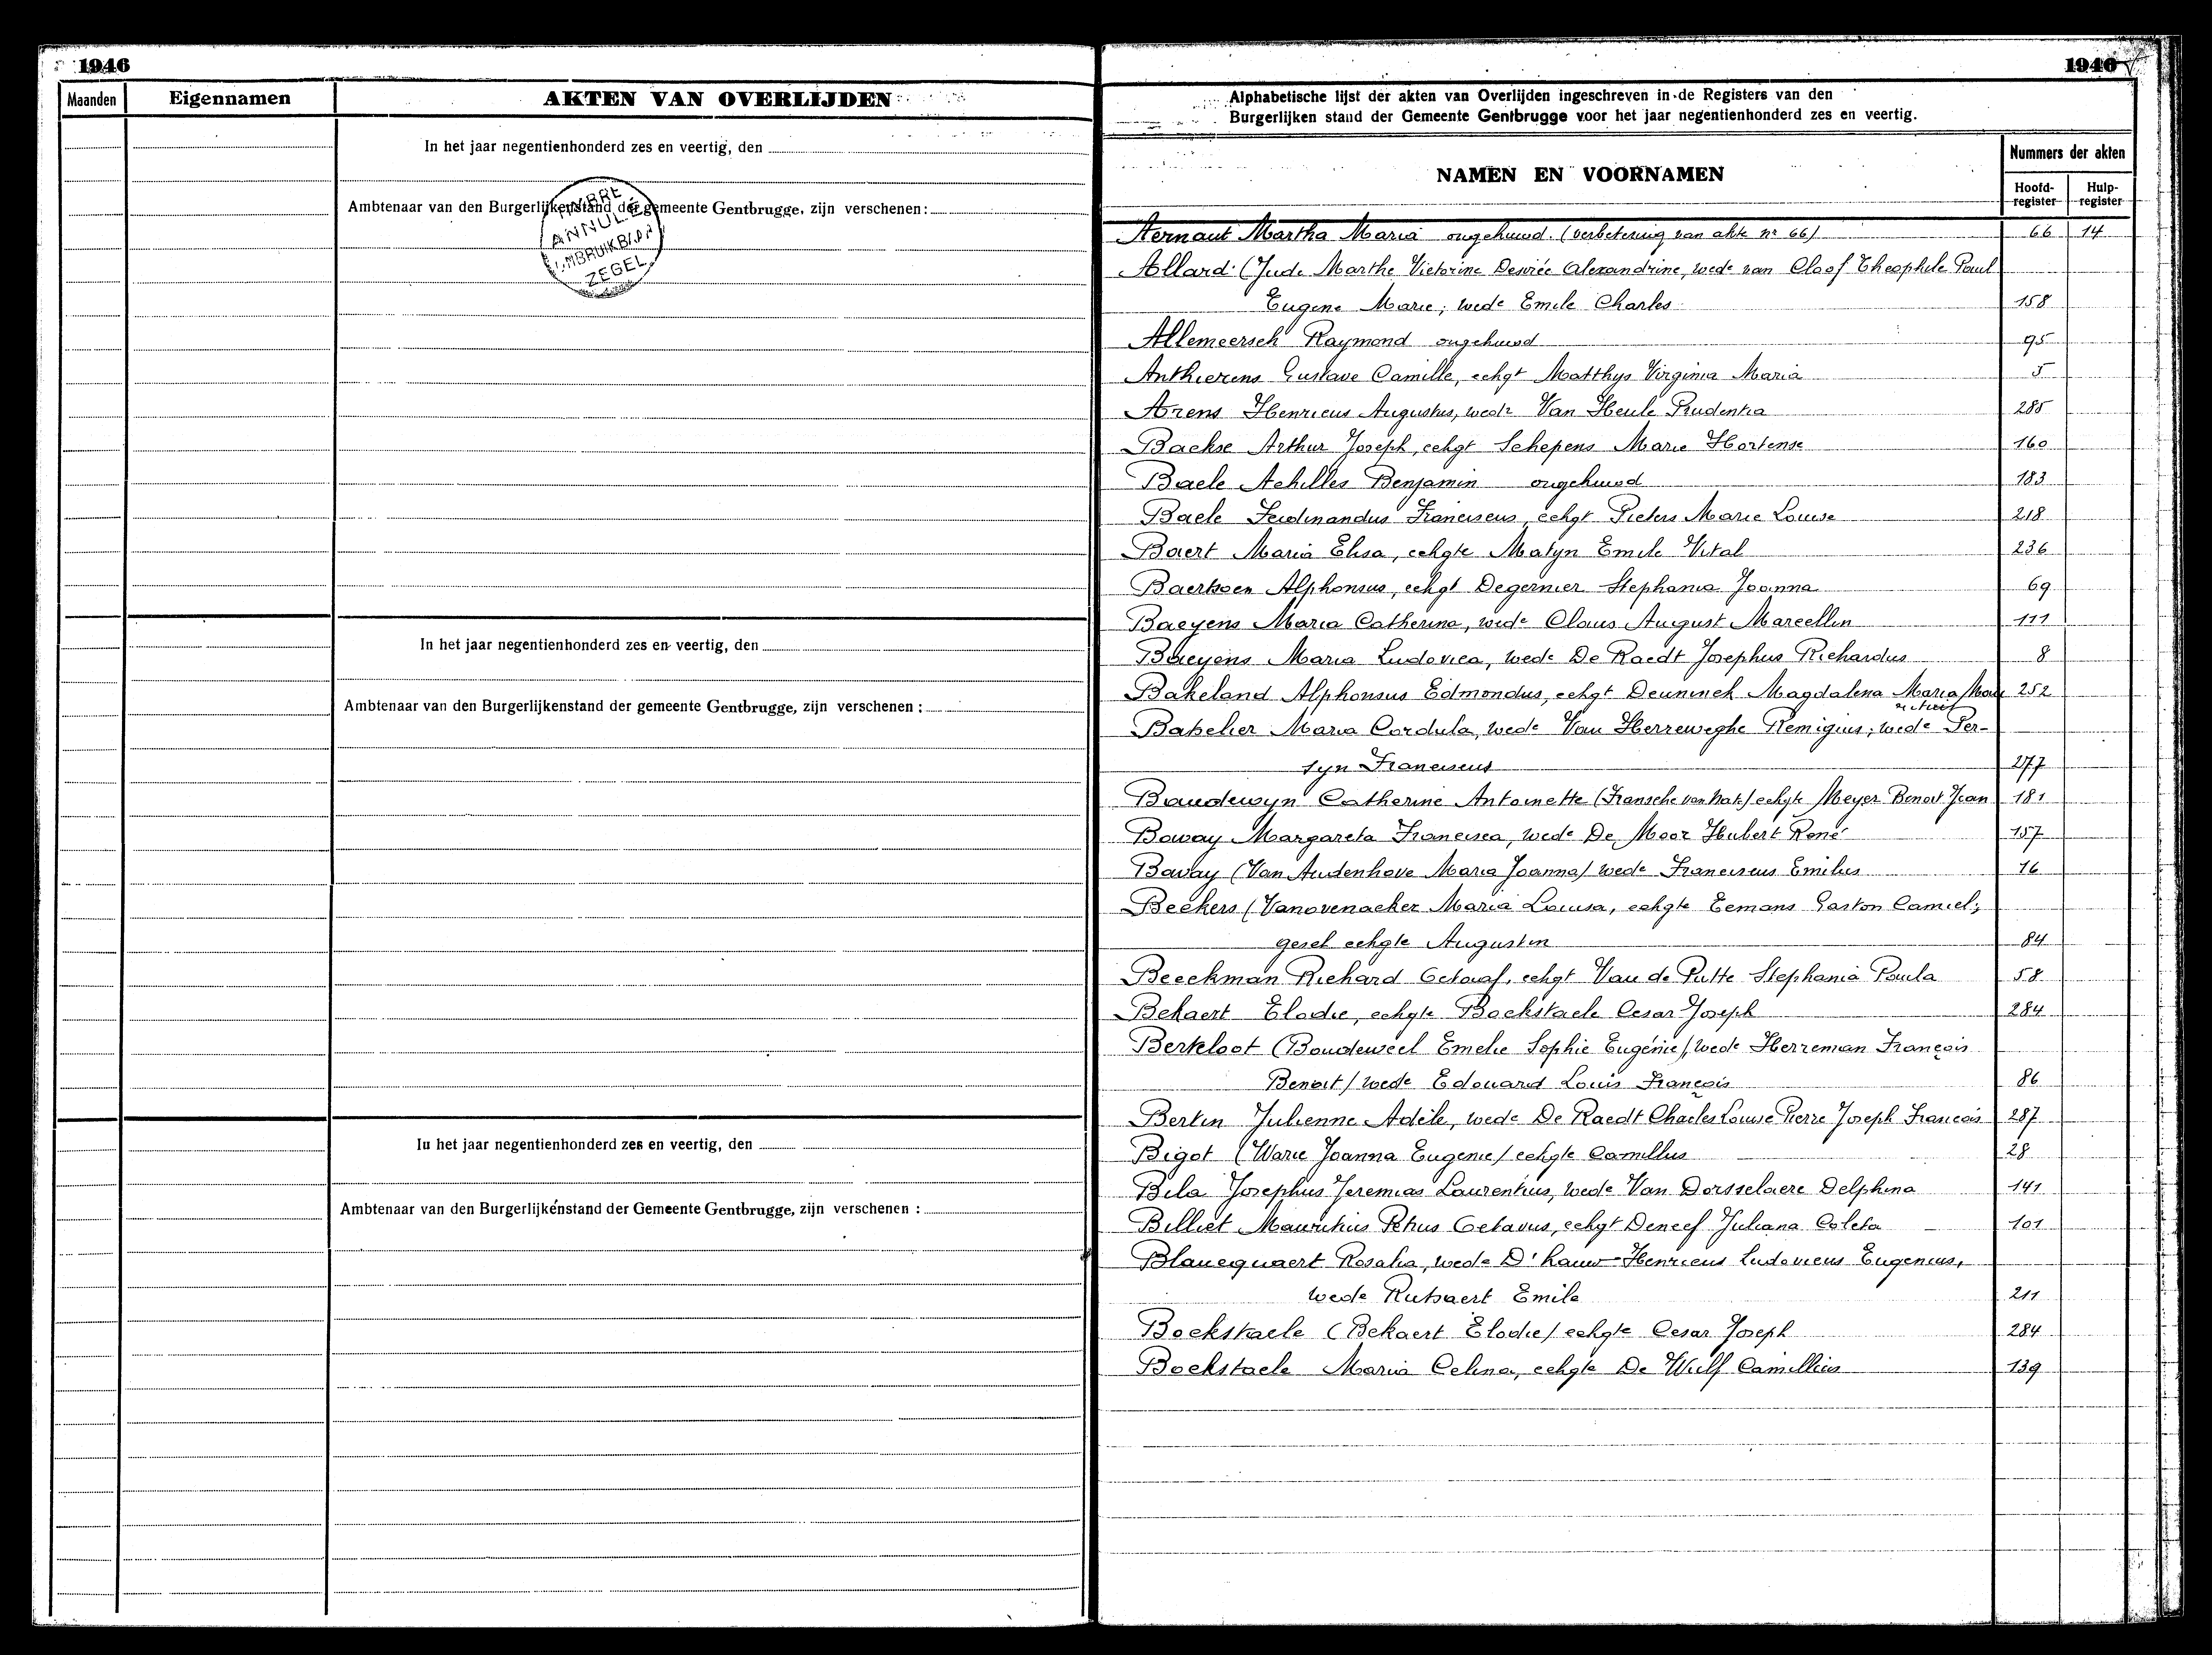 1946
Maanden Eigennamen AKTEN VAN OVERLIJDEN
In het jaar negentienhonderd zes en veertig, den
Ambtenaar van den Burgerlijkenstand der gemeente Gentbrugge, zijn verschenen:
TIMBRE
ANNULÉ
ONBRUIKBAAR
ZEGEL
In het jaar negentienhonderd zes en veertig, den
Ambtenaar van den Burgerlijkenstand der gemeente Gentbrugge, zijn verschenen :
Iu het jaar negentienhonderd zes en veertig, den
Ambtenaar van den Burgerlijkénstand der Gemeente Gentbrugge, zijn verschenen :
1946
Alphabetische lijst der akten van Overlijden ingeschreven in de Registers van den
Burgerlijken stand der Gemeente Gentbrugge voor het jaar negentienhonderd zes en veertig.
NAMEN EN VOORNAMEN
Nummers der akten
Hoofd-register Hulp-register
Aernaut Martha Maria ongehuwd (verbetering van akte nr 66) 66 14
Allard (Jude Marthe Victorine Desirée Alexandrine, wede van Cloof Théophile Paul
Eugene Marie; wede Emile Charles 158
Allemeersch Raymond ongehuwd 95
Anthierens Gustave Camille, echgt Matthys Virginia Maria 5
Arens Henricus Augustus, wedr Van Heule Prudentia 285
Backse Arthur Joseph, echgt Schepens Marie Hortense 160
Baele Achilles Benjamin ongehuwd 183
Baele Ferdinandus Franciscus, echgt Pieters Marie Louise 218
Baert Maria Elisa, echgte Matyn Emile Vital 236
Baertsoen Alphonsus, echgt Degernier Stephania Joanna 69
Baeyens Maria Catherina, wede Claus August Marcellin 111
Baeyens Maria Ludovica, wede De Raedt Josephus Richardus 8
Bakeland Alphonsus Edmondus, echgt Deuninck Magdalena Maria 252
Bakelier Maria Cordula, wede Van Herreweghe Remigius; wede Per-
syn Franciscus 277
Baudewyn Catherine Antoinette (Fransche van nat.) echgte Meyer Benoit Jean 181
Bavay Margareta Francisca, wede De Moor Hubert René 157
Bavay (Van Audenhove Maria Joanna) wede Franciscus Emilius 16
Beekers (Vanovenacker Maria Louisa, echgte Eemans Gaston Camiel;
gesch echgte Augustin 84
Beeckman Richard Octaaf, echgt Van de Putte Stephania Paula 58
Bekaert Elodie, echgte Bockstaele Cesar Joseph 284
Berkloot (Boudeweel Emelie Sophie Eugénie), wede Herreman François
Benoit) wede Edouard Louis François 86
Bertin Julienne Adèle, wede De Raedt Charles Louise Pierre Joseph François 287
Bigot (Warie Joanna Eugenie) echgte Camillus 28
Bila Josephus Jeremias Laurentius, wede Van Dorsselaere Delphina 141
Billiet Mauritius Petrus Octavus, echgt Deneef Juliana Coleta 101
Blancquaert Rosalia, wede D'hauw Henricus Ludovicus Eugenius,
wede Rutsaert Emile 211
Bockstaele (Bekaert Elodie) echgte Cesar Joseph 284
Bockstaele Maria Celina, echgte De Wulf Camillius 139